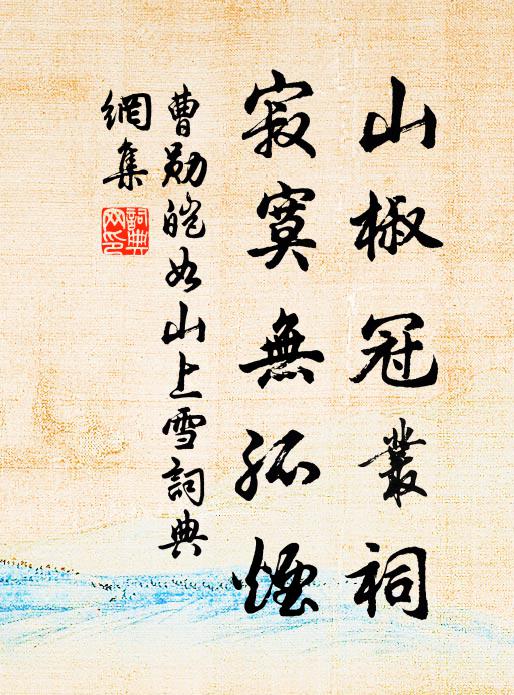 山椒冠叢祠
寂寞無孤煙
曹勛皚如山上雪詞典
網集
詞典網印